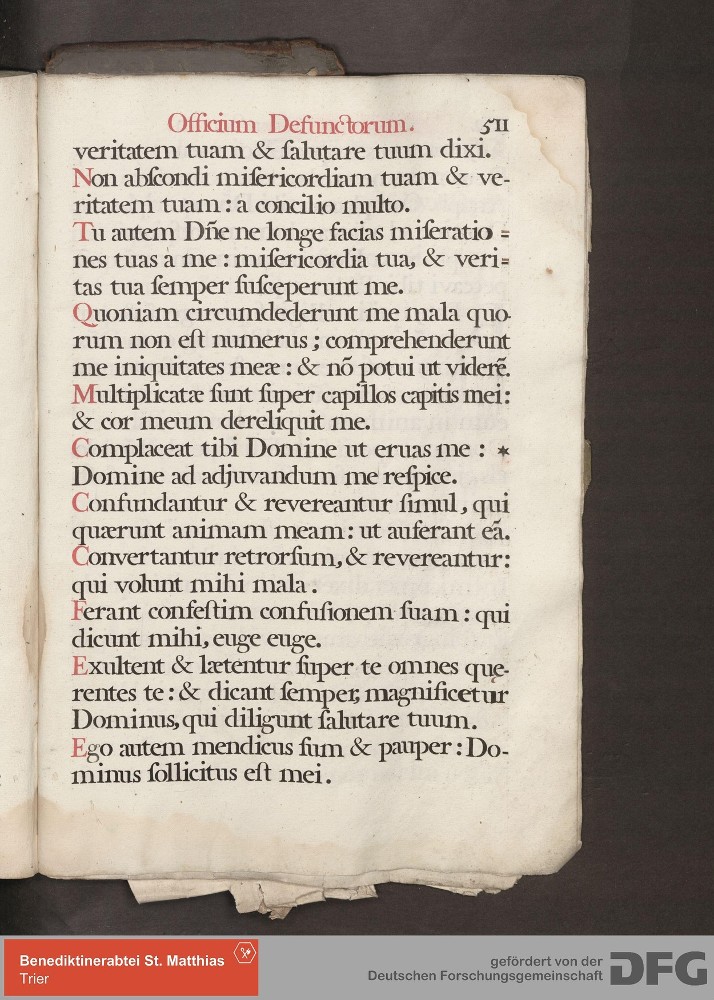 Officium Defunctorum. 511
veritatem tuam & ſalutare tuum dixi.
Non abſcondi miſericordiam tuam & ve-
ritatem tuam : a concilio multo.
Tu autem Dñe ne longe facias miſeratio =
nes tuas a me : miſericordia tua, & veri=
tas tua ſemper ſuſceperunt me.
Quoniam circumdederunt me mala quo-
rum non eſt numerus ; comprehenderunt
me iniquitates meæ : & nõ potui ut viderẽ.
Multiplicatæ ſunt ſuper capillos capitis mei :
& cor meum dereliquit me.
Complaceat tibi Domine ut eruas me : *
Domine ad adjuvandum me reſpice.
Confundantur & revereantur ſimul, qui
quærunt animam meam : ut auferant eã.
Convertantur retrorſum, & revereantur :
qui volunt mihi mala .
Ferant confeſtim confuſionem ſuam : qui
dicunt mihi, euge euge.
Exultent & lætentur ſuper te omnes quę-
rentes te : & dicant ſemper, magnificetur
Dominus, qui diligunt ſalutare tuum.
Ego autem mendicus ſum & pauper : Do-
minus ſollicitus eſt mei .
Benediktinerabtei St. Matthias
Trier
gefördert von der
Deutschen Forschungsgemeinschaft
DFG